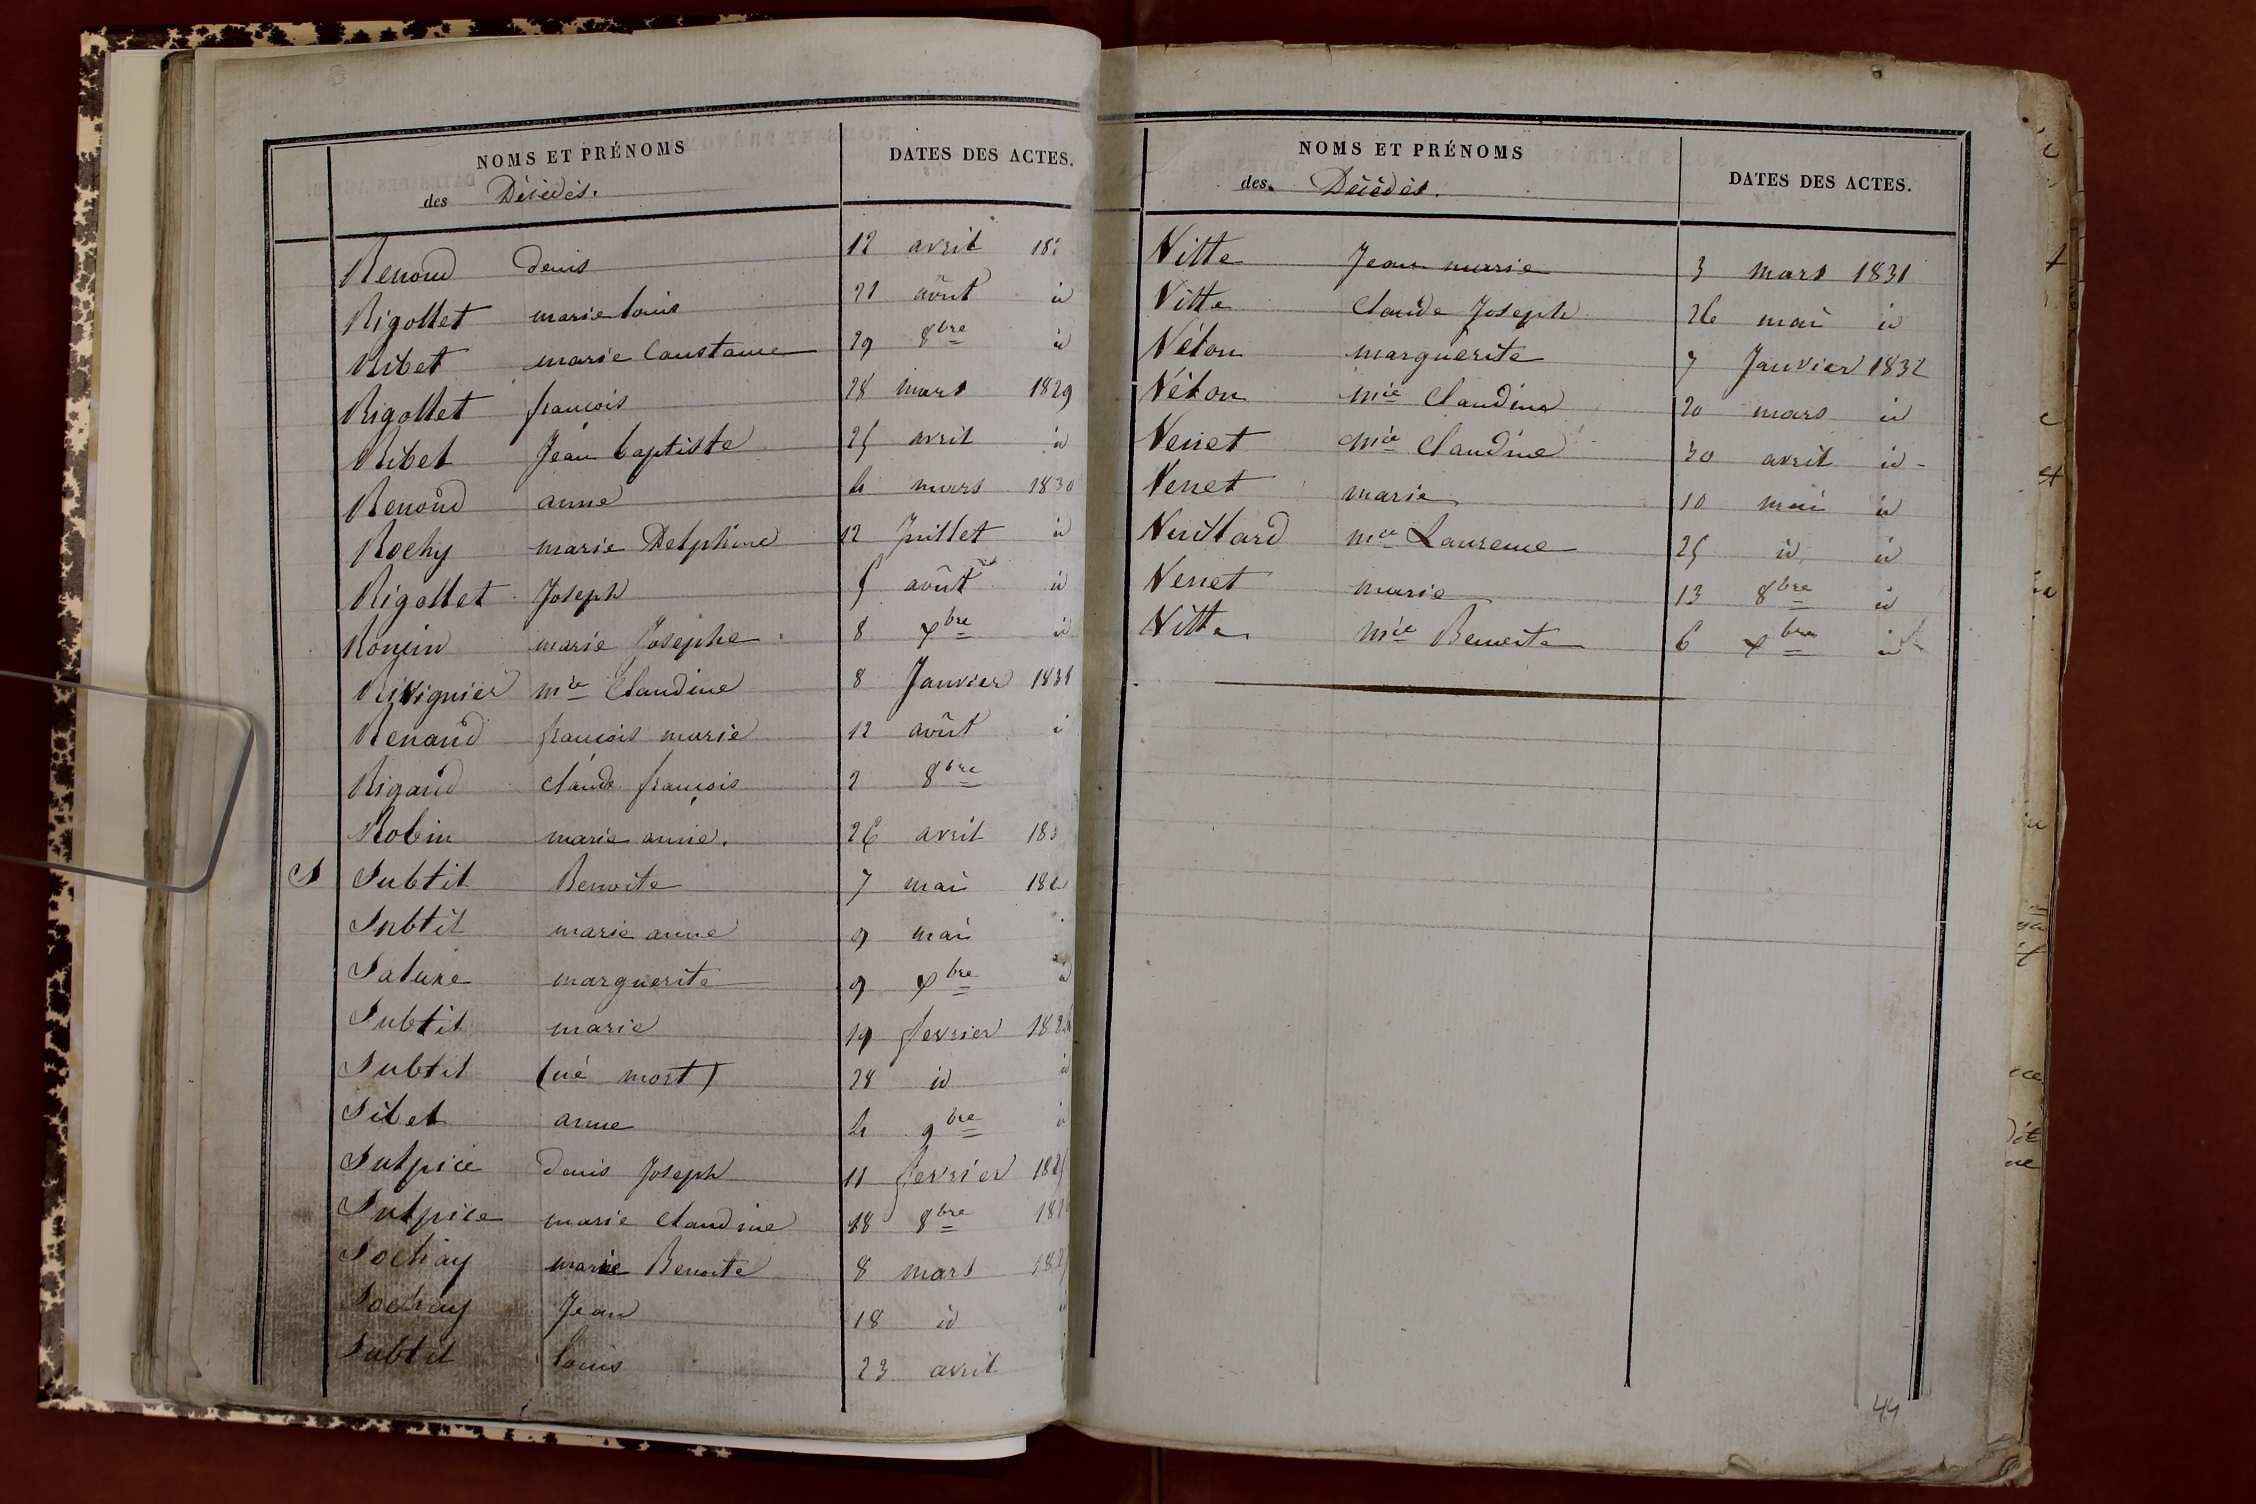 NOMS ET PRÉNOMS
des Décèdés.
DATES DES ACTES.
Renoud denis 12 avril 182
Rigollet marie louis 21 août id
Ribet marie Constance 29 8bre id
Rigollet francois 28 mars 1829
Ribet Jean baptiste 25 avril id
Renoud anne 4 mars 1830
Rochy marie Delphine 12 Juillet id
Rigollet Joseph 5 août id
Roncin marie Josephe 8 xbre id
Rivignier mie Claudine 8 Janvier 1831
Renaud francois marie 12 août i
Rigaud claude françois 2 8bre
Robin marie anne. 26 avril 183
S Subtil Benoite 7 mai 182
Subtil marie anne 9 mai
Saluxe marguerite 9 xbre id
Subtil marie 19 fevrier 1824
Subtil (né mort) 28 id id
Sibet anne 4 9bre i
Sulpice denis Joseph 11 fevrier 182
Sulpice marie claudine 18 8bre 182
Sochay marie Benoite 8 mars 182
Sochay Jean 18 id
Subtil louis 23 avril
NOMS ET PRÉNOMS
des Décèdés.
DATES DES ACTES.
Vitte Jean marie 3 mars 1831
Vitte Claude Joseph 26 mai id
Véton marguerite 7 Janvier 1832
Véton mie Claudine 20 mars id
Venet mie Claudine 30 avril id
Venet marie 10 mai id
Vuillard mie Laurence 25 id id
Venet marie 13 8bre id
Vitte mie Benoite 6 xbre id
44